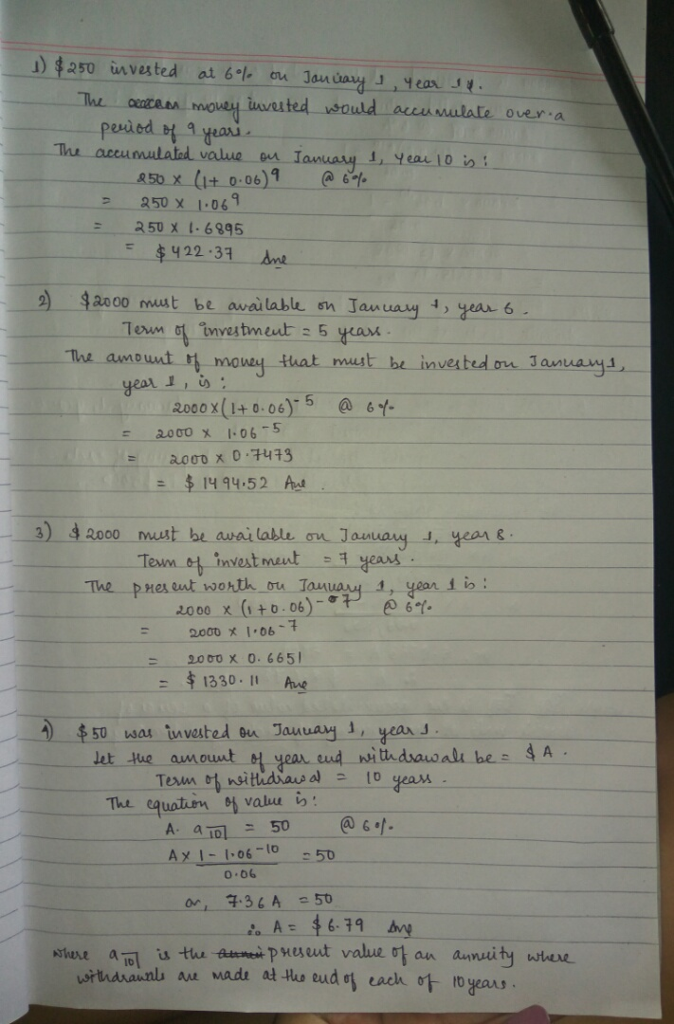 1) $250 invested at 6% on January 1, Year 1.
The money invested would accumulate over a
period of 9 years.
The accumulated value on January 1, Year 10 is :
250 x (1+ 0.06)^9 @ 6%
= 250 x 1.06^9
= 250 x 1.6895
= $422.37 Ans
2) $2000 must be available on January 1, year 6.
Term of investment = 5 years.
The amount of money that must be invested on January 1,
year 1, is :
2000x(1+0.06)^-5 @ 6%
= 2000 x 1.06^-5
= 2000 x 0.7473
= $ 1494.52 Ans.
3) $2000 must be available on January 1, year 8.
Term of investment = 7 years.
The present worth on January 1, year 1 is :
2000 x (1+0.06)^-7 @ 6%.
= 2000 x 1.06^-7
= 2000 x 0.6651
= $ 1330.11 Ans
4) $50 was invested on January 1, year 1.
Let the amount of year end withdrawals be = $ A.
Term of withdrawal = 10 years.
The equation of value is :
A. a10| = 50 @ 6%.
A x 1 - 1.06^-10 = 50
0.06
or, 7.36 A = 50
∴ A = $ 6.79 Ans
where a10| is the present value of an annuity where
withdrawals are made at the end of each of 10 years.